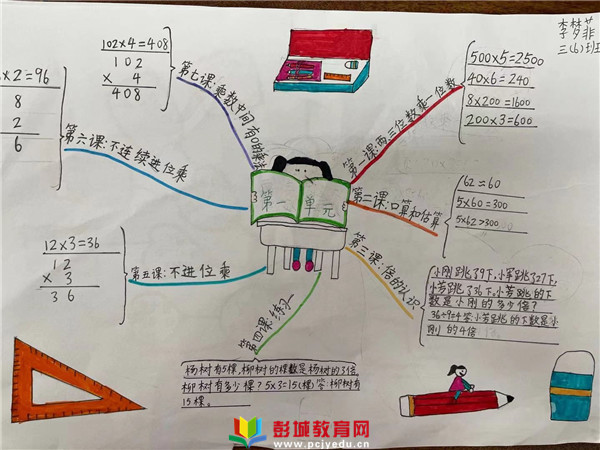 李梦菲
三(6)班
102×4=408
102
× 4
408
第七课:乘数中间有0的乘法
×2=96
8
2
6
第六课:不连续进位乘
12×3=36
12
× 3
36
第五课:不进位乘
第一单元
第一课:两三位数乘一位数
500×5=2500
40×6=240
8×200=1600
200×3=600
第二课:口算和估算
62≈60
5×60=300
5×62>300
第三课:倍的认识
小刚跳了9下,小军跳了27下,
小芳跳了36下,小芳跳的下
数是小刚的多少倍?
36÷9=4答:小芳跳的下数是小
刚的4倍
第四课:练习一
杨树有5棵,柳树的棵数是杨树的3倍,
柳树有多少棵?5×3=15(棵)答:柳树有
15棵。
彭城教育网
www.pcjyedu.cn